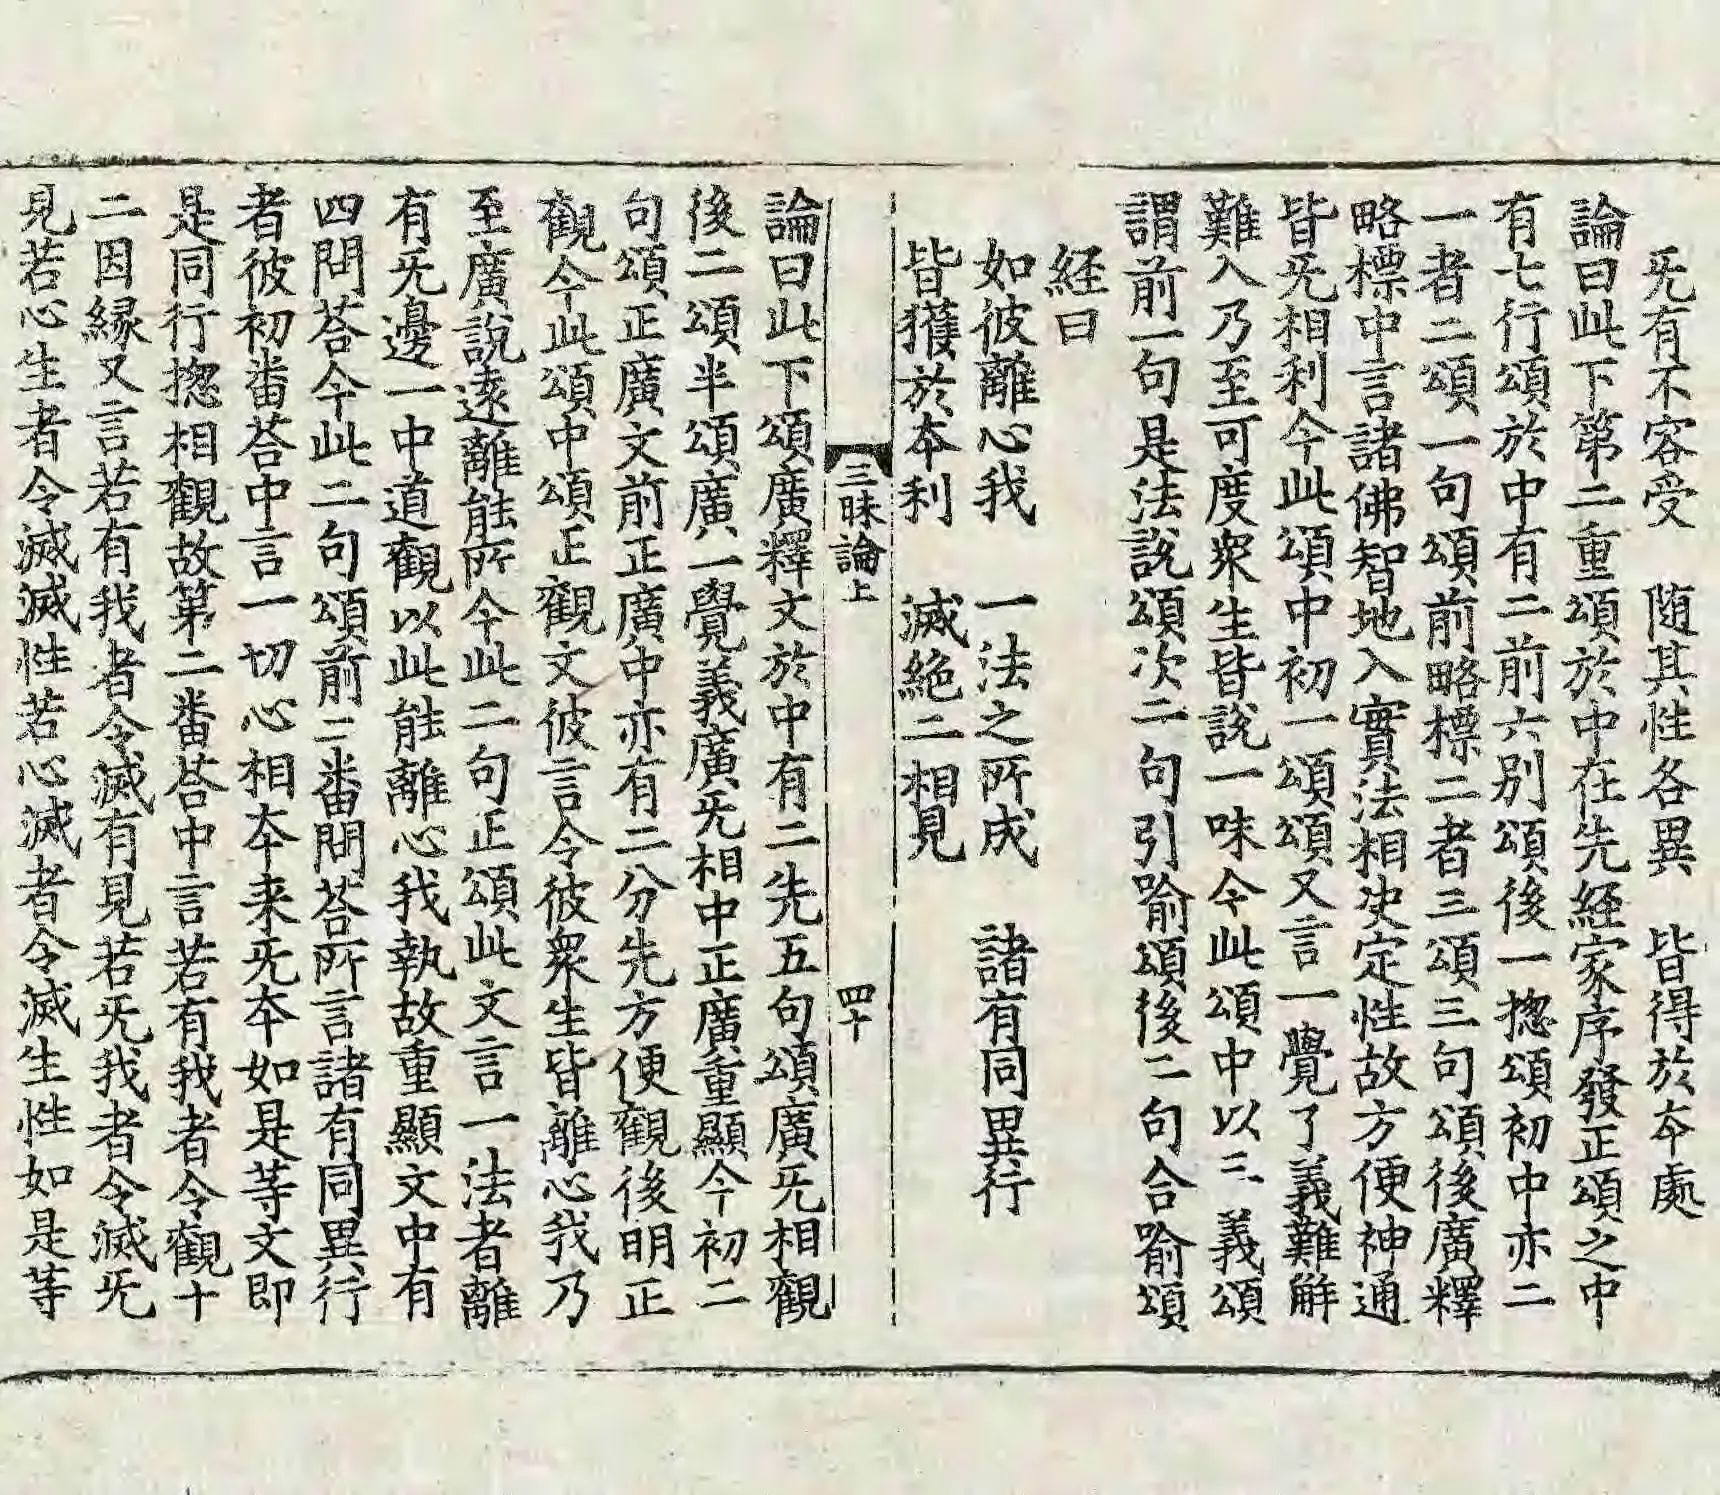 旡有不容受　随其性各異　皆得於夲處
論曰此下第二重頌於中在先経家序發正頌之中
有七行頌於中有二前六別頌後一揔頌初中亦二
一者二頌一句頌前略標二者三頌三句頌後廣釋
略標中言諸佛智地入實法相決定性故方便神通
皆旡相利今此頌中初一頌頌又言一覺了義難解
難入乃至可度衆生皆說一味今此頌中以三義頌
謂前一句是法說頌次二句引喻頌後二句合喻頌
経曰
如彼離心我　一法之所成　諸有同異行
皆獲於夲利　滅絶二相見
三昧論上　四十
論曰此下頌廣釋文於中有二先五句頌廣旡相觀
後二頌半頌廣一覺義廣旡相中正廣重顯今初二
句頌正廣文前正廣中亦有二分先方便觀後明正
觀今此頌中頌正觀文彼言令彼衆生皆離心我乃
至廣說遠離能所今此二句正頌此文言一法者離
有旡邊一中道觀以此能離心我執故重顯文中有
四問荅今此二句頌前三番問荅所言諸有同異行
者彼初番荅中言一切心相夲来旡夲如是等文即
是同行揔相觀故第二番荅中言若有我者令觀十
二因緣又言若有我者令滅有見若旡我者令滅旡
見若心生者令滅滅性若心滅者令滅生性如是等